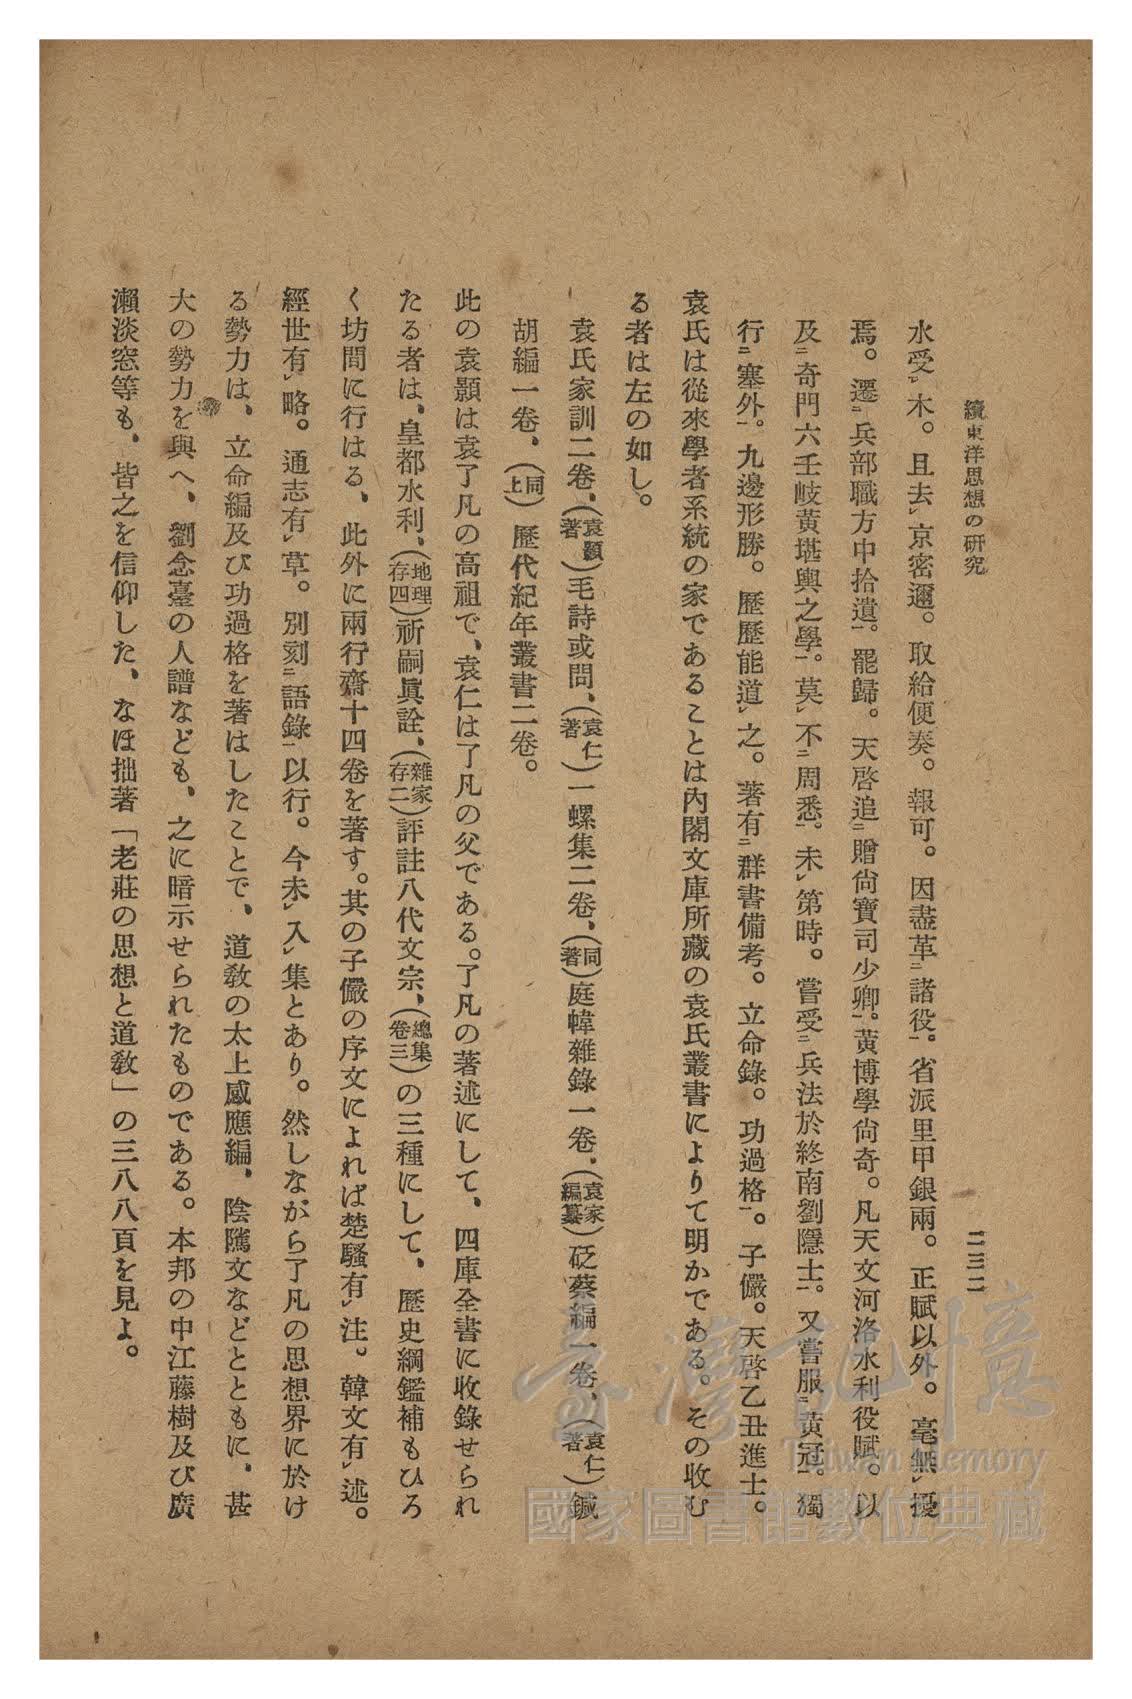 續東洋思想の研究
二三二
水受レ木。且去レ京密邇。取給便奏。報可。因盡革二諸役一。省派里甲銀兩。正賦以外。毫無レ擾
焉。遷二兵部職方中拾遺一。罷歸。天啓追二贈尙寶司少卿一。黃博學尙奇。凡天文河洛水利役賦。以
及二奇門六壬岐黃堪輿之學一。莫レ不二周悉一。未レ第時。嘗受二兵法於終南劉隱士一。又嘗服二黃冠一。獨
行二塞外一。九邊形勝。歷歷能道レ之。著有二群書備考。立命錄。功過格一。子儼。天啓乙丑進士。
袁氏は從來學者系統の家であることは內閣文庫所藏の袁氏叢書によりて明かである。その收む
る者は左の如し。
袁氏家訓二卷、(袁顥著)毛詩或問、(袁仁著)一螺集二卷、(同著)庭幃雜錄一卷、(袁家編纂)砭蔡編一卷、(袁仁著)鍼
胡編一卷、(同上)歷代紀年叢書二卷。
此の袁顥は袁了凡の高祖で、袁仁は了凡の父である。了凡の著述にして、四庫全書に收錄せられ
たる者は、皇都水利、(地理存四)祈嗣眞詮、(雜家存二)評註八代文宗、(總集卷三)の三種にして、歷史綱鑑補もひろ
く坊間に行はる、此外に兩行齋十四卷を著す。其の子儼の序文によれば楚騷有レ注。韓文有レ述。
經世有レ略。通志有レ草。別刻二語錄一以行。今未レ入レ集とあり。然しながら了凡の思想界に於け
る勢力は、立命編及び功過格を著はしたことで、道敎の太上感應編、陰隲文などとともに、甚
大の勢力を與へ、劉念臺の人譜なども、之に暗示せられたものである。本邦の中江藤樹及び廣
瀨淡窓等も、皆之を信仰した、なほ拙著「老莊の思想と道敎」の三八八頁を見よ。
臺灣記憶
Taiwan Memory
國家圖書館數位典藏